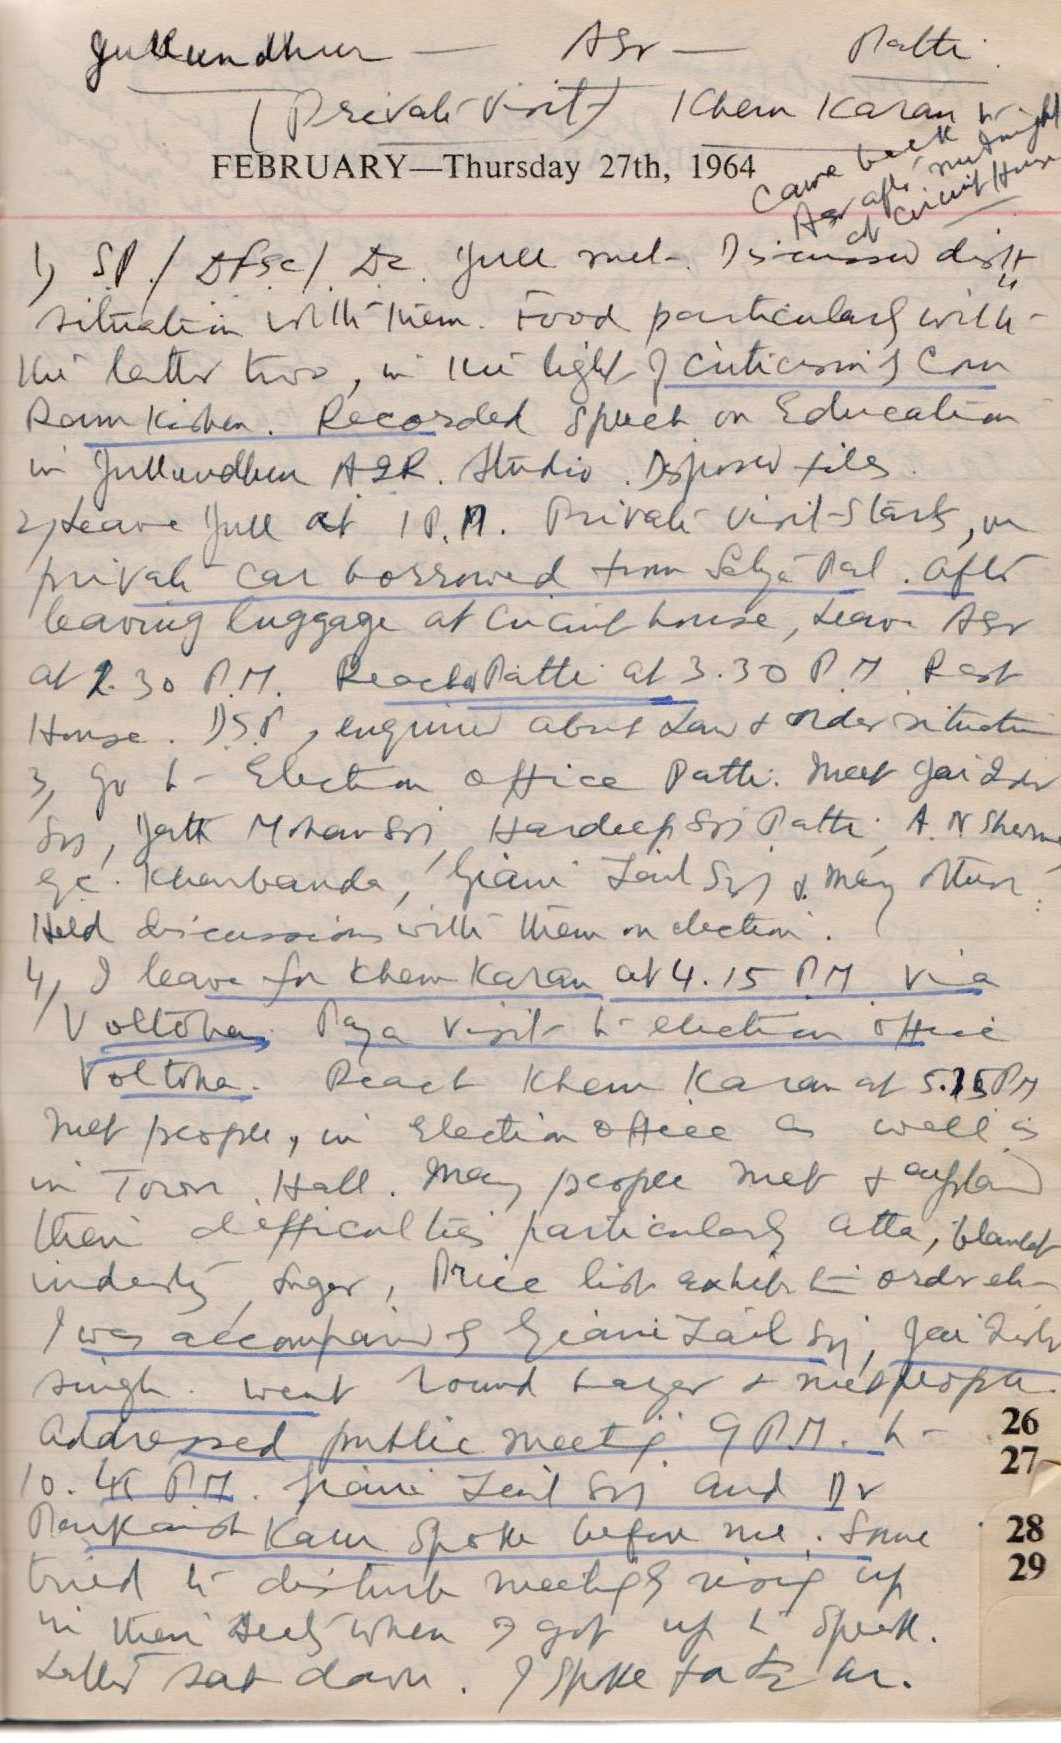 Jullundhur — Asr — Patti.
(Private Visit) Khem Karan &
came back
Asr after midnight
at Circuit House
FEBRUARY—Thursday 27th, 1964
1) S.P./ DFSC/ DC. Jull met. Discussed distt
situation with them. Food particularly with
the latter two, in the light of criticism of Com
Ram Kishen. Recorded Speech on Education
in Jullundhur AIR. Studio. Disposed files.
2) Leave Jull at 1 P.M. Private visit starts, in
private car borrowed from Satya Pal. After
leaving luggage at Circuit house, Leave Asr
at 2.30 P.M. Reach Patti at 3.30 P.M Rest
House. DSP, enquired about Law & order situation
3, Go to Election office Patti. Meet Jai Inder
Singh, Mohan Singh, Hardeep Singh Patti, A. N Sharma
Kharbanda, Giani Zail Singh & many others.
Held discussions with them on election.
4, I leave for Khem Karan at 4.15 P.M via
Voltoha, Pay a visit to election office
Voltoha. Reach Khem Karan at 5.15 PM
Met people, in Election office as well as
in Town Hall. Many people met & explained
their difficulties particularly atta, blanket
industry, Sugar, Price list exhibit order etc
I was accompanied by Giani Zail Singh, Jai Inder
Singh. Went round bazar & met people.
Addressed public meeting 9 P.M. to
10.45 P.M. Giani Zail Singh and Dr
Kaur Spoke before me. Some
tried to disturb meeting by rising up
in their seats when I got up to Speak.
Later sat down. I Spoke for to hr.
26
27
28
29